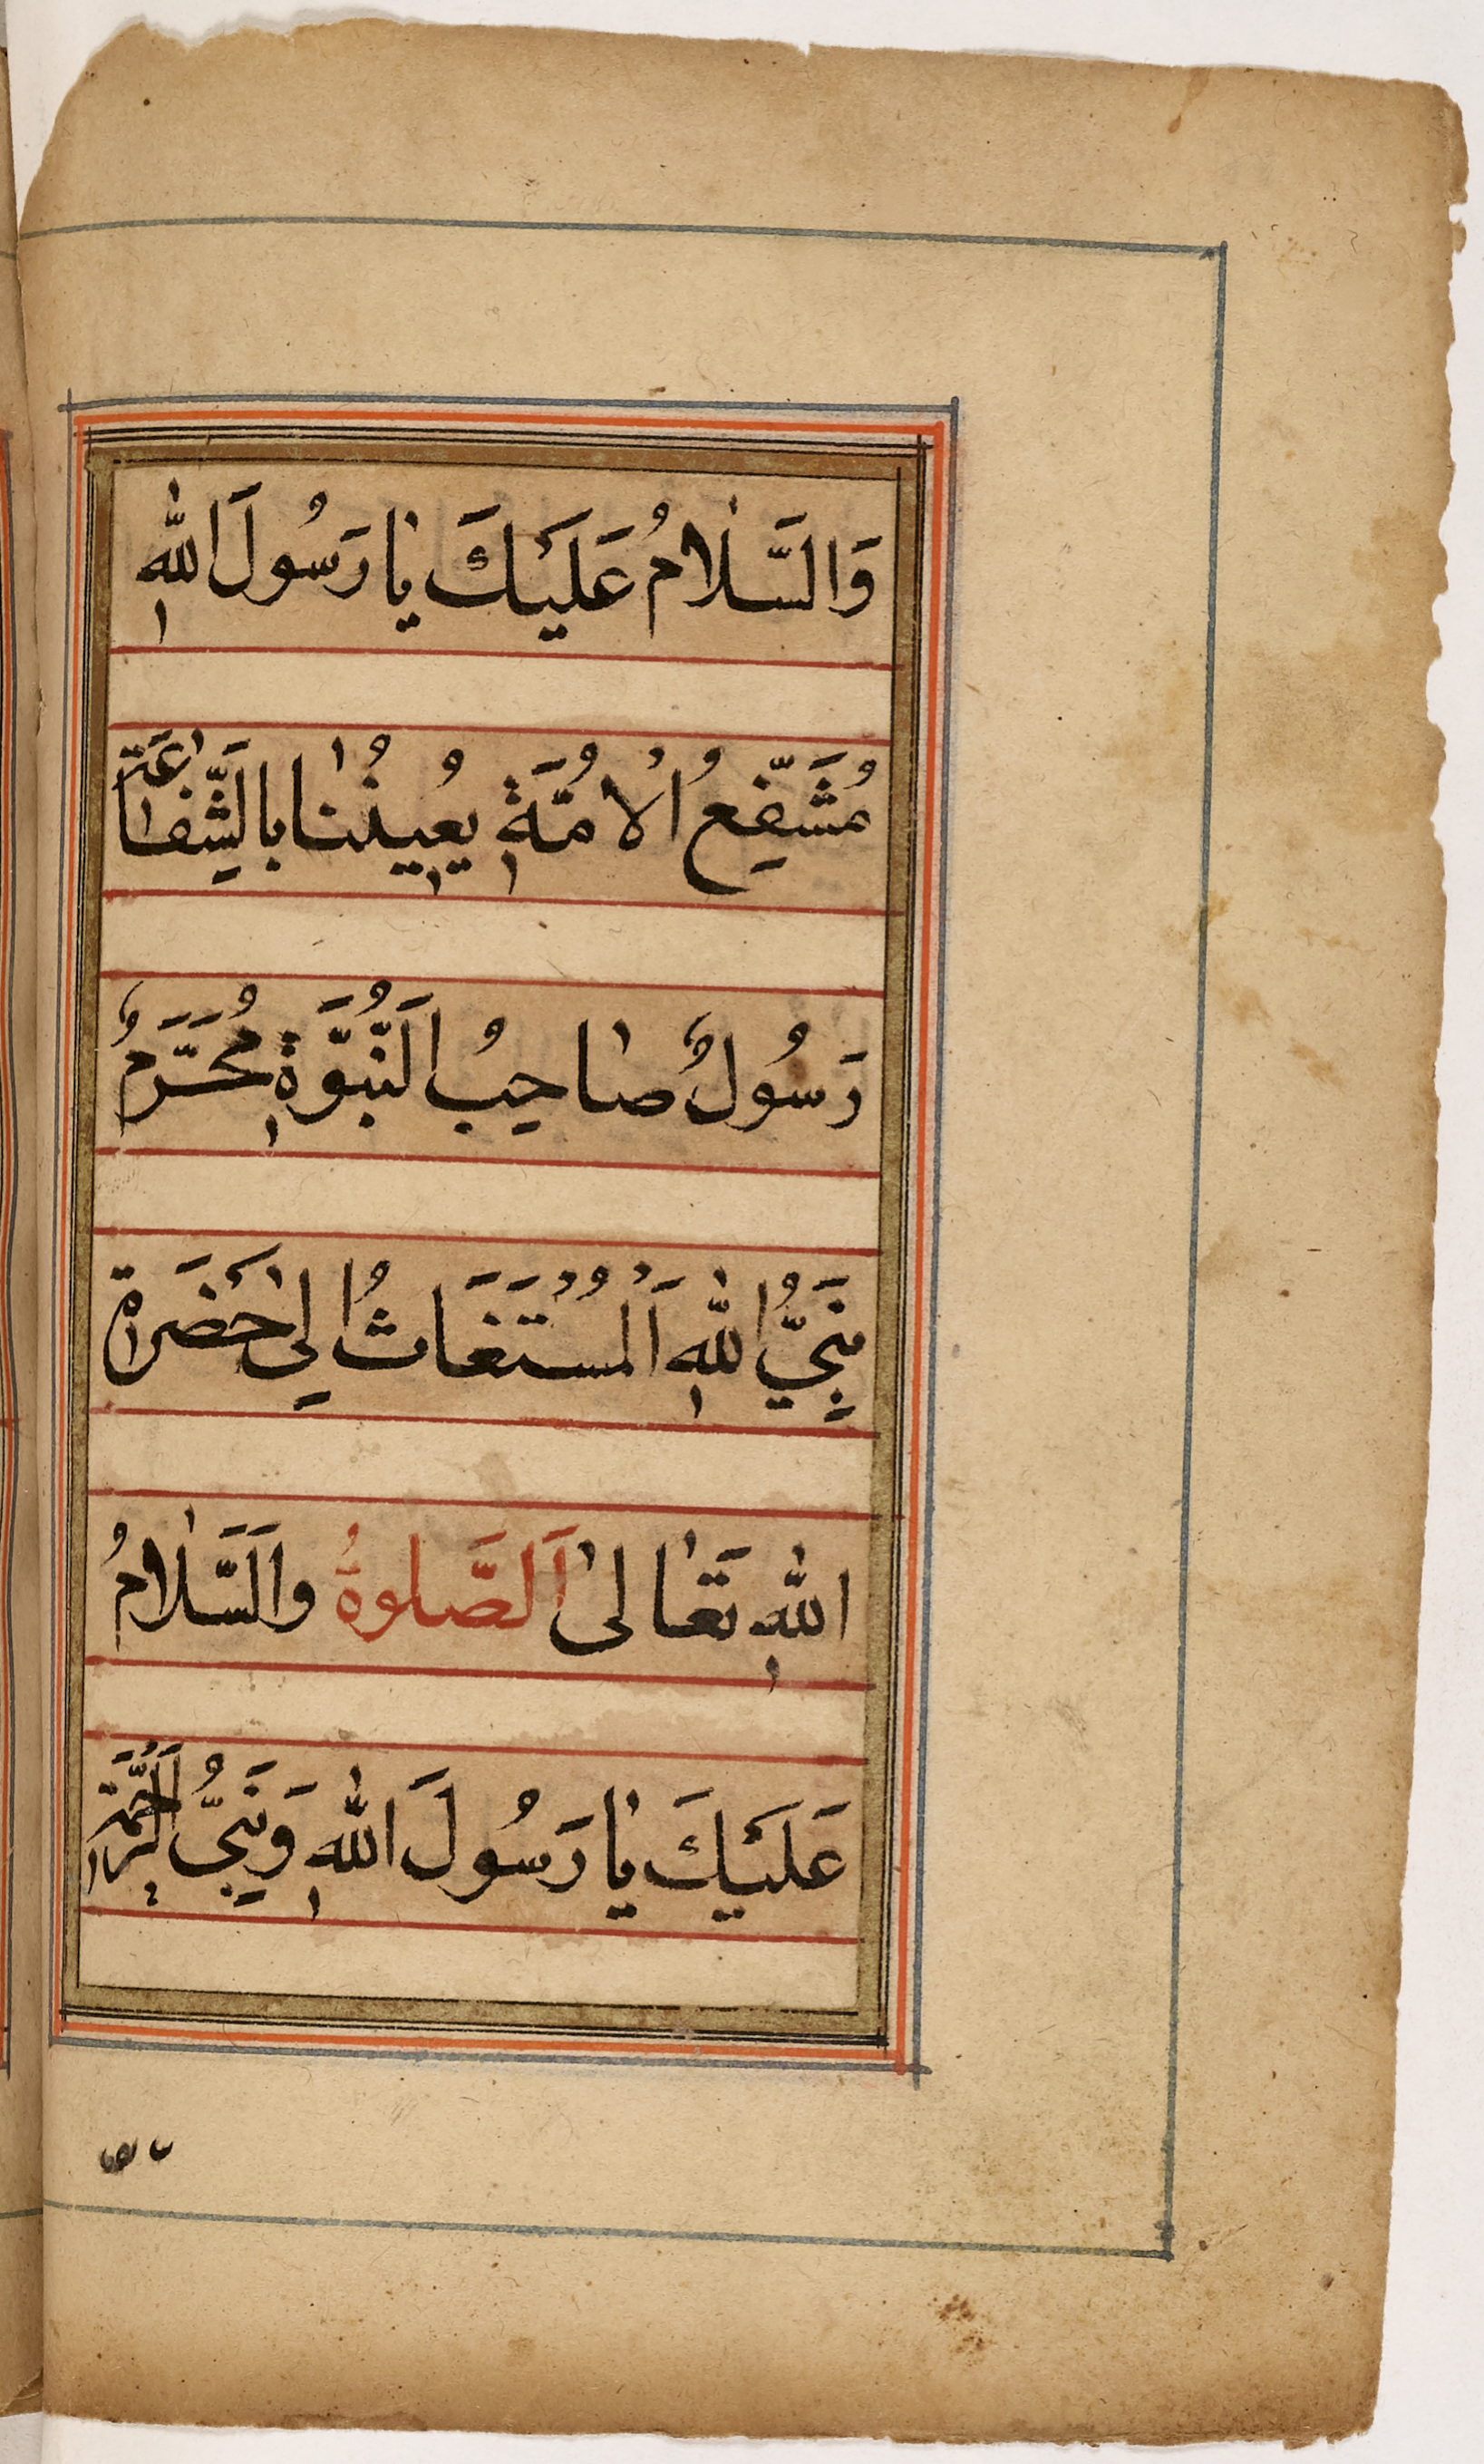 وَالسَّلَامُ عَلَيْكَ يَا رَسُولَ اللهِ
مُشَفِّعُ الْاُمَّةِ يُعِينُنَا بِالشَّفَاعَةِ
رَسُولٌ صَاحِبُ النُّبُوَّةِ مُحَرَّمٌ
نَبِيُّ اللهِ اَلْمُسْتَغَاثُ اِلٰى حَضْرَةِ
اللهِ تَعَالىٰ اَلصَّلوةُ وَالسَّلَامُ
عَلَيْكَ يَا رَسُولَ اللهِ وَنَبِيَّ الرَّحْمَةِ